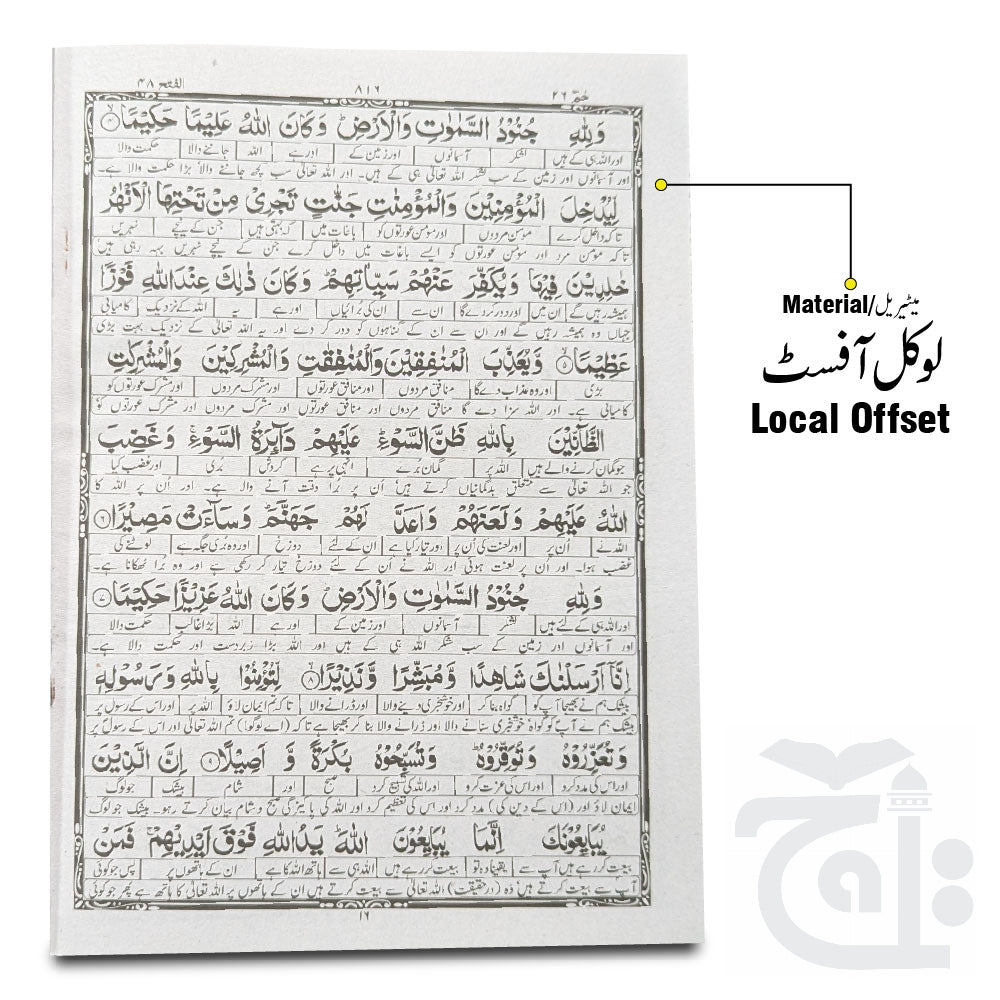 حٰمٓ ٢٦
٨١٦
الفتح ٤٨
وَلِلّٰهِ جُنُوْدُ السَّمٰوٰتِ وَالْاَرْضِ ؕ وَكَانَ اللّٰهُ عَلِيْمًا حَكِيْمًا ۙ﴿۴﴾
اور اللہ ہی کے ہیں | لشکر | آسمانوں | اور زمین کے | اور ہے | اللہ | جاننے والا | حکمت والا
اور آسمانوں اور زمین کے سب لشکر اللہ تعالٰی ہی کے ہیں۔ اور اللہ تعالٰی سب کچھ جاننے والا بڑا حکمت والا ہے۔
لِّيُدْخِلَ الْمُؤْمِنِيْنَ وَالْمُؤْمِنٰتِ جَنّٰتٍ تَجْرِيْ مِنْ تَحْتِهَا الْاَنْهٰرُ
تاکہ داخل کرے | مومن مردوں | اور مومن عورتوں کو | باغات میں | کہ بہتی ہیں | جن کے نیچے | نہریں
تاکہ مومن مرد اور مومن عورتوں کو ایسے باغات میں داخل کرے جن کے نیچے نہریں بہہ رہی ہیں
خٰلِدِيْنَ فِيْهَا وَيُكَفِّرَ عَنْهُمْ سَيِّاٰتِهِمْ ؕ وَكَانَ ذٰلِكَ عِنْدَ اللّٰهِ فَوْزًا
ہمیشہ رہیں گے | ان میں | اور دور کر دے گا | ان سے | ان کی برائیاں | اور ہے | یہ | اللہ کے نزدیک | کامیابی
جہاں وہ ہمیشہ رہیں گے اور ان سے ان کے گناہوں کو دور کر دے اور یہ اللہ تعالٰی کے نزدیک بہت بڑی
عَظِيْمًا ۙ﴿۵﴾ وَّيُعَذِّبَ الْمُنٰفِقِيْنَ وَالْمُنٰفِقٰتِ وَالْمُشْرِكِيْنَ وَالْمُشْرِكٰتِ
بڑی | اور وہ عذاب دے گا | منافق مردوں | اور منافق عورتوں | اور مشرک مردوں | اور مشرک عورتوں کو
کامیابی ہے۔ اور اللہ سزا دے گا منافق مردوں اور منافق عورتوں اور مشرک مردوں اور مشرک عورتوں کو
الظَّآنِّيْنَ بِاللّٰهِ ظَنَّ السَّوْءِ ؕ عَلَيْهِمْ دَآئِرَةُ السَّوْءِ ۚ وَغَضِبَ
جو گمان کرنے والے ہیں | اللہ پر | گمان بُرے | انہی پر ہے | گردش | بُری | اور غضب کیا
جو اللہ تعالٰی سے متعلق بدگمانیاں کرتے ہیں اُن پر بُرا وقت آنے والا ہے۔ اور اُن پر اللہ کا
اللّٰهُ عَلَيْهِمْ وَلَعَنَهُمْ وَاَعَدَّ لَهُمْ جَهَنَّمَ ؕ وَسَآءَتْ مَصِيْرًا ﴿۶﴾
اللہ نے | اُن پر | اور لعنت کی اُن پر | اور تیار کیا ہے | ان کے لئے | دوزخ | اور وہ بُری جگہ ہے | لوٹنے کی
غضب ہوا۔ اور اُن پر لعنت ہوئی اور اللہ نے اُن کے لئے دوزخ تیار کر رکھی ہے اور وہ بُرا ٹھکانا ہے۔
وَلِلّٰهِ جُنُوْدُ السَّمٰوٰتِ وَالْاَرْضِ ؕ وَكَانَ اللّٰهُ عَزِيْزًا حَكِيْمًا ﴿۷﴾
اور اللہ ہی کے لئے ہیں | لشکر | آسمانوں | اور زمین کے | اور ہے | اللہ | بڑا غالب | حکمت والا
اور آسمانوں اور زمین کے سب لشکر اللہ ہی کے ہیں اور اللہ بڑا زبردست اور حکمت والا ہے۔
اِنَّاۤ اَرْسَلْنٰكَ شَاهِدًا وَّمُبَشِّرًا وَّنَذِيْرًا ۙ﴿۸﴾ لِّتُؤْمِنُوْا بِاللّٰهِ وَرَسُوْلِهٖ
بیشک ہم نے بھیجا آپ کو | گواہ بنا کر | اور خوشخبری دینے والا | اور ڈرانے والا | تاکہ تم ایمان لاؤ | اللہ پر | اور اس کے رسول پر
بیشک ہم نے آپ کو گواہ خوشخبری سنانے والا اور ڈرانے والا بنا کر بھیجا ہے تاکہ (اے لوگو) تم اللہ تعالٰی اور اس کے رسول پر
وَتُعَزِّرُوْهُ وَتُوَقِّرُوْهُ ؕ وَتُسَبِّحُوْهُ بُكْرَةً وَّاَصِيْلًا ﴿۹﴾ اِنَّ الَّذِيْنَ
اور اس کی مدد کرو | اور اس کی عزت کرو | اور اللہ کی تسبیح کرو | صبح | اور | شام | بیشک | جو لوگ
ایمان لاؤ اور (اس کے دین کی) مدد کرو اور اس کی تعظیم کرو اور اللہ کی پاکیزگی صبح و شام بیان کرتے رہو۔ بیشک جو لوگ
يُبَايِعُوْنَكَ اِنَّمَا يُبَايِعُوْنَ اللّٰهَ ؕ يَدُ اللّٰهِ فَوْقَ اَيْدِيْهِمْ ۚ فَمَنْ
بیعت کر رہے ہیں آپ سے | یقیناً وہ تو | بیعت کر رہے ہیں | اللہ ہی سے | ہاتھ اللہ کا ہے | ان کے ہاتھوں پر | پس جو کوئی
آپ سے بیعت کرتے ہیں وہ (درحقیقت) اللہ تعالٰی سے بیعت کرتے ہیں ان کے ہاتھوں پر اللہ تعالٰی کا ہاتھ ہے پھر جو کوئی
١٦
Material/میٹیریل
لوکل آفسٹ
Local Offset